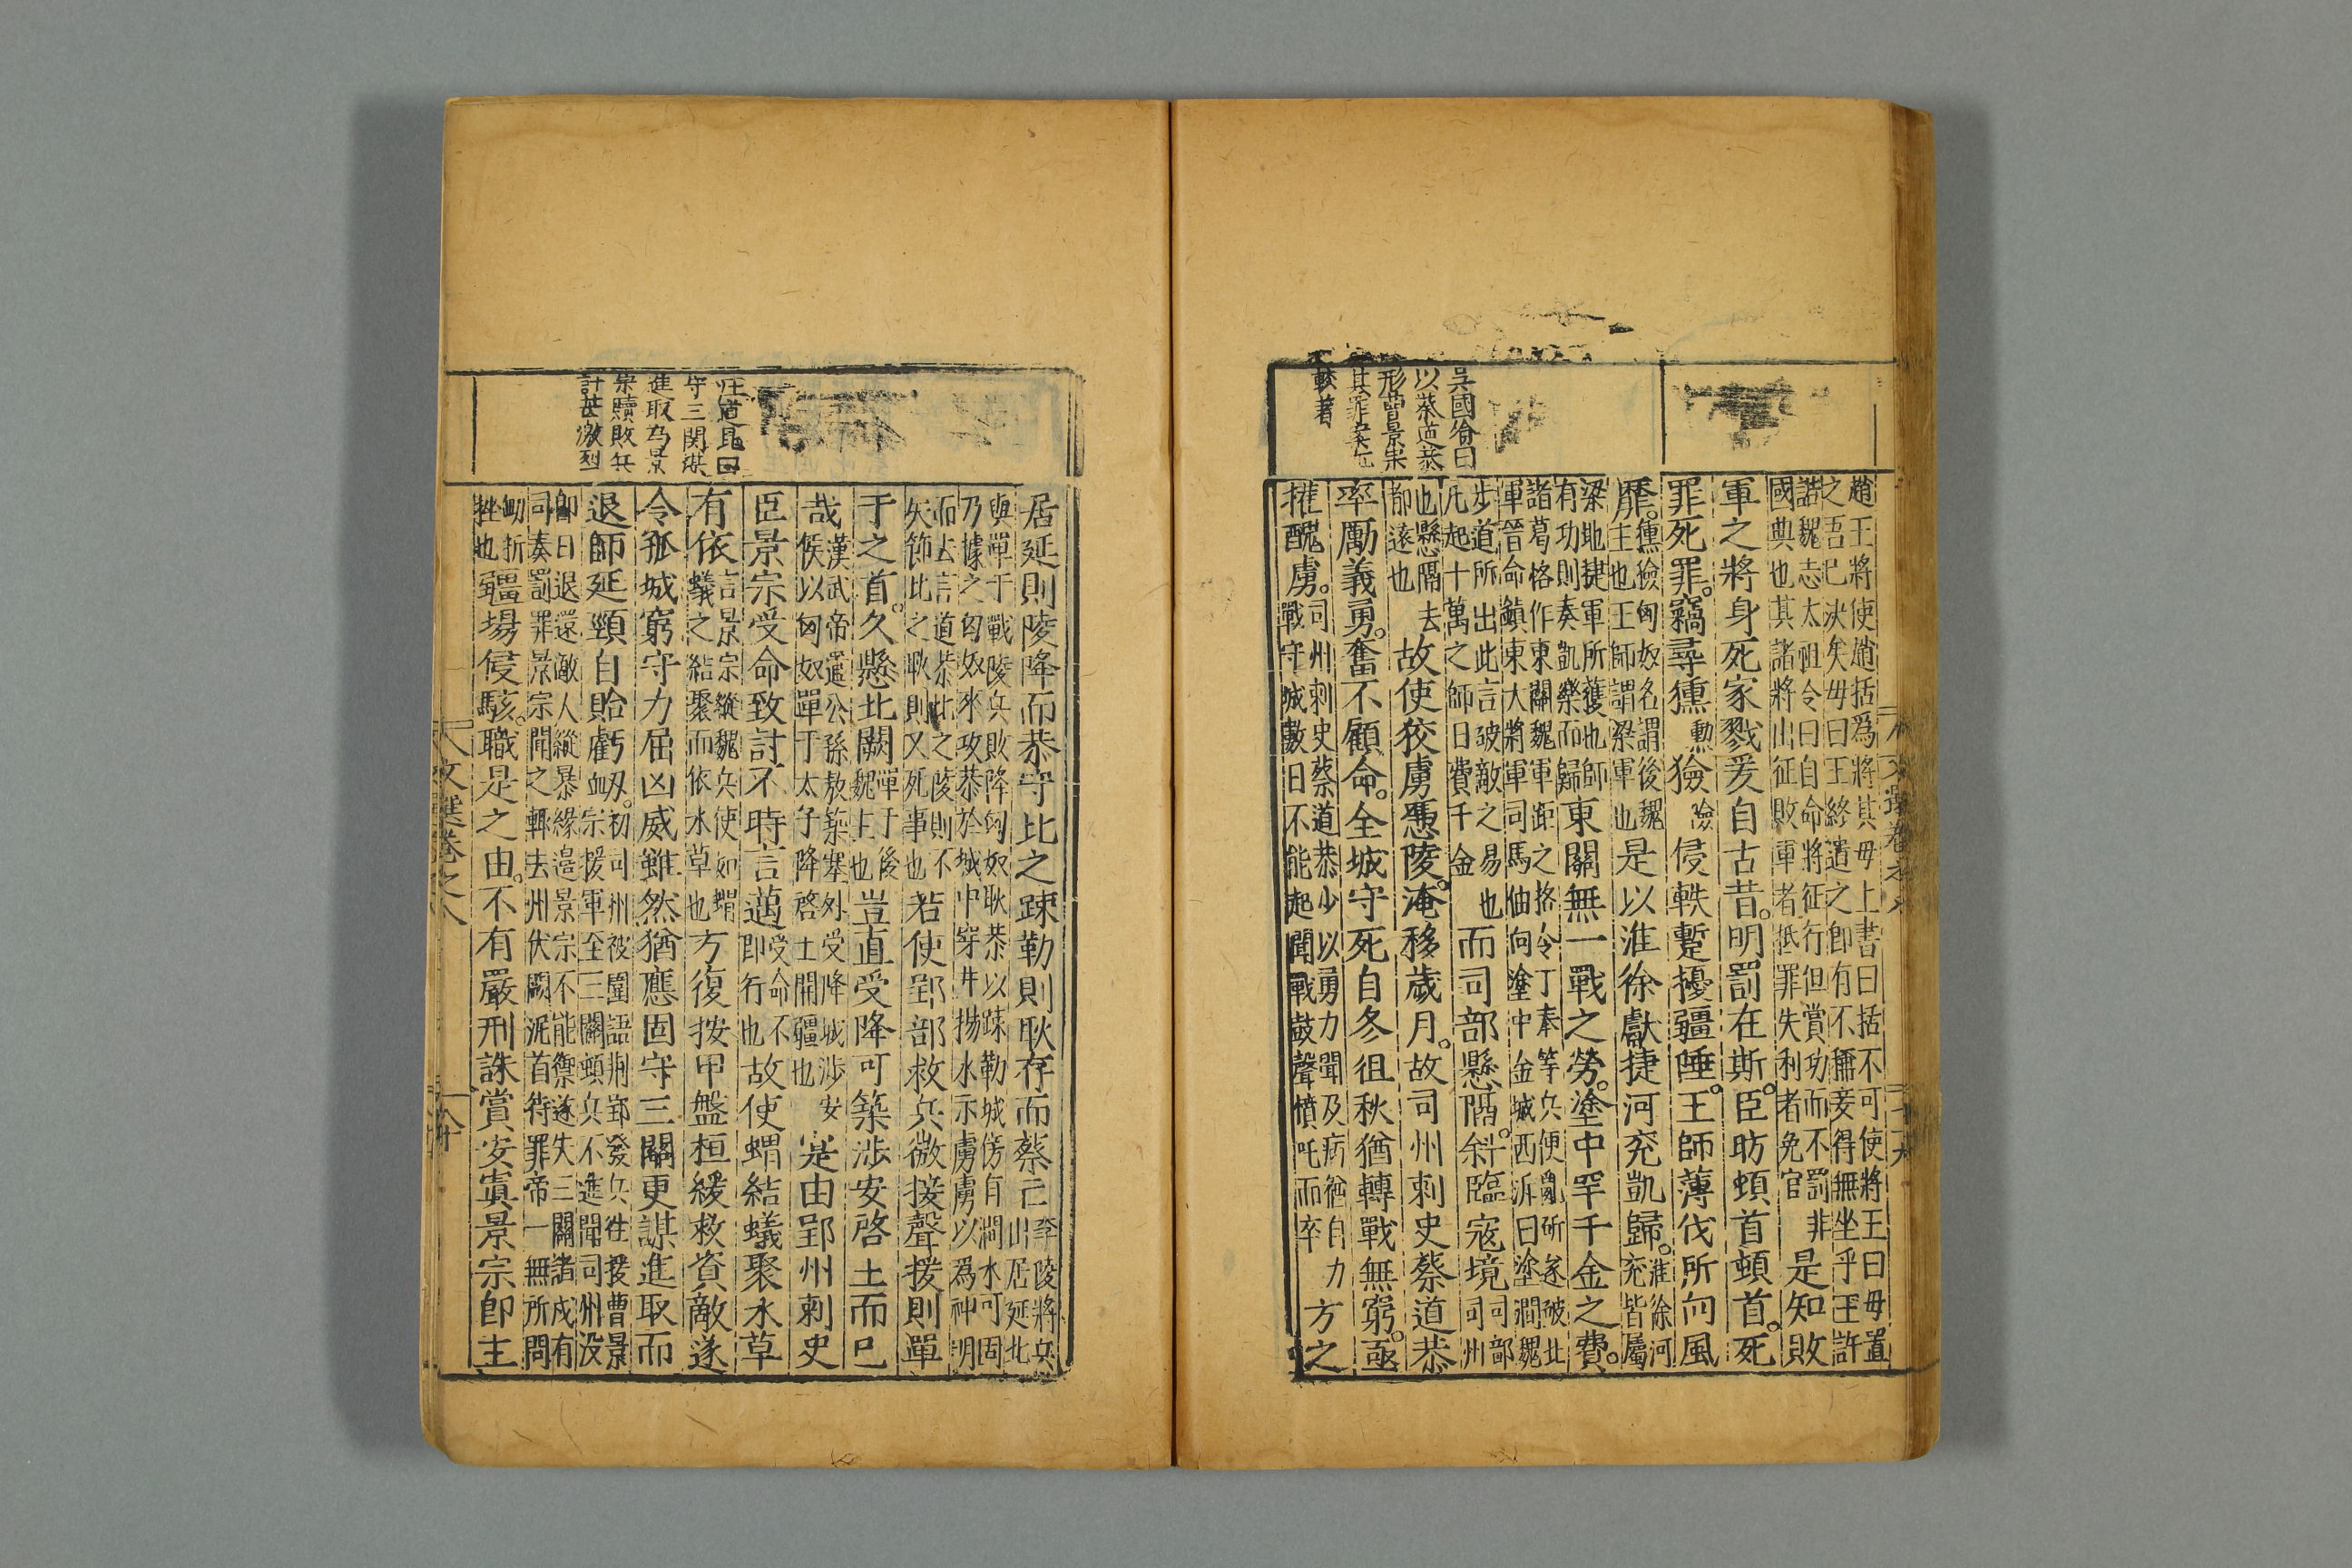 趙王將使趙括爲將其母上書曰括不可使將王曰毋置
之吾已決矣毋曰王終遣之卽有不稱妾得無坐乎王許
諾魏志太祖令曰自命將征行但賞功而不罰非
國典也其諸將出征敗軍者抵罪失利者免官 是知敗
軍之將身死家戮爰自古昔。明罰在斯。臣昉頓首頓首。死
罪死罪。竊尋獯勳獫險侵軼蹔擾疆陲。王師薄伐所向風
靡。獯獫匈奴名謂後魏主也王師謂梁軍也是以淮徐獻捷河兗凱歸。淮徐河兗皆屬
梁地捷軍所獲也師有功則奏凱樂而歸東關無一戰之勞。塗中罕千金之費。
諸葛恪作東關魏軍距之恪令丁奉等兵便亂斫遂破北
軍晉命鎮東大將軍司馬伷向塗中金城西泝曰塗澗魏
步道所出此言破敵之易也凡起十萬之師日費千金而司部懸隔。斜臨寇境司部司州
也懸隔去都遠也故使狡虜憑陵。淹移歲月。故司州刺史蔡道恭
率勵義勇。奮不顧命。全城守死自冬徂秋猶轉戰無窮。亟
摧醜虜。司州刺史蔡道恭少以勇力聞及病猶自力戰守城數日不能起聞戰鼓聲憤吒而卒方之
吳國倫曰
以蔡道恭
形曹景宗
其罪案
較著
居延則陵降而恭守比之疎勒則耿存而蔡亡李陵將兵出居延北
與單于戰陵兵敗降匈奴耿恭以疎勒城傍有澗水可固
乃據之匈奴來攻恭於城中穿井揚水示虜虜以爲神明
而去言道恭比之陵則不
矣節比之耿則又死事也若使郢部救兵微接聲援則單
于之首。久懸北闕單于後魏主也豈直受降可築涉安啓土而已
哉漢武帝遣公孫敖築塞外受降城涉安侯以匈奴單于太子降啓土開疆也寔由郢州刺史
臣景宗受命致討不時言邁受命不卽行也故使蝟結蟻聚水草
有依言景宗縱魏兵使如蝟蟻之結聚而依水草也方復按甲盤桓緩救資敵遂
令孤城窮守力屈凶威雖然猶應固守三關更謀進取而
退師延頸自貽虧衂。初司州被圍詔荊郢發兵往援曹景宗援軍至三關頓兵不進聞司州没
卽日退還敵人縱暴緣邊景宗不能禦遂失三關諸戍有
司奏罰罪景宗聞之輒去州伏闕泥首待罪帝一無所問
衂折挫也疆埸侵駭。職是之由。不有嚴刑誅賞安寘景宗卽主
汪道昆曰
守三関謀
進取為景
宗贖敗兵
計甚激烈
文選卷之八